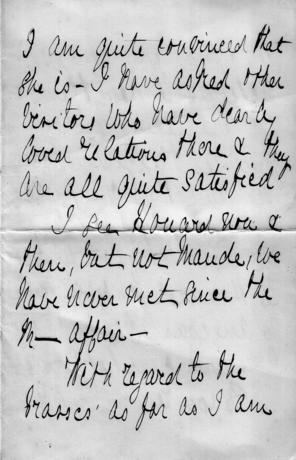 I am quite convinced that
she is - I have asked other
visitors who have dearly
loved relations there & they
are all quite satisfied
I see Howard now &
then, but not Maude, we
have never met since the
M— affair -
With regard to the
brasses as far as I am